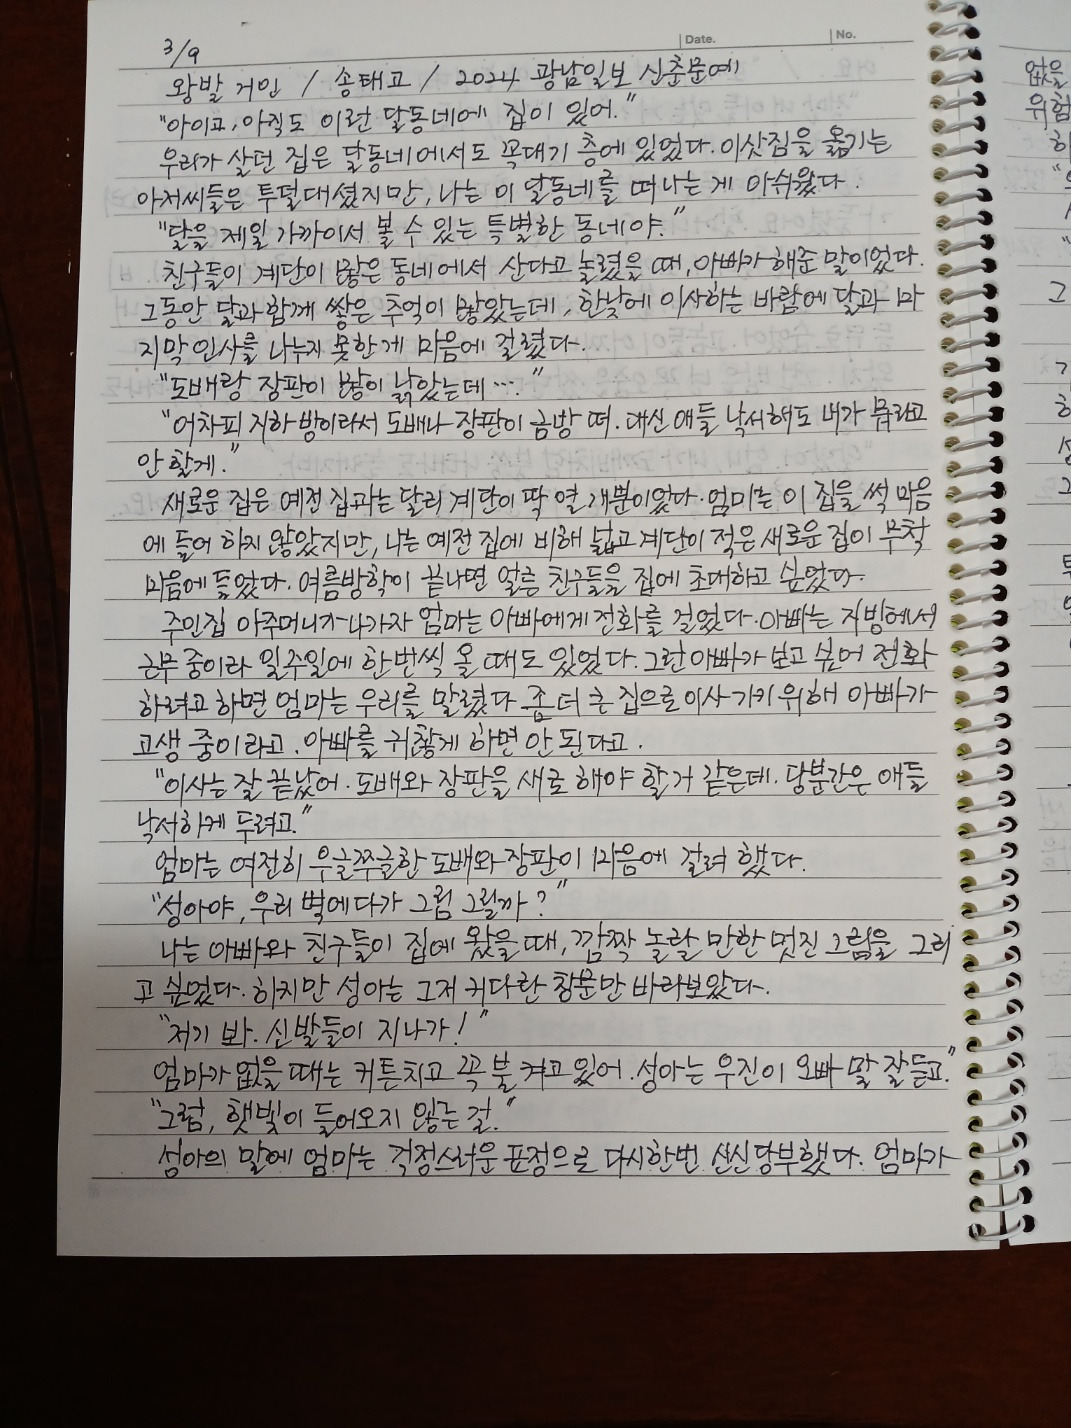 Date.
No.
3/9
왕발 거인 / 송태고 / 2024 광남일보 신춘문예
"아이고, 아직도 이런 달동네에 집이 있어."
우리가 살던 집은 달동네에서도 꼭대기 층에 있었다. 이삿짐을 옮기는
아저씨들은 투덜대셨지만, 나는 이 달동네를 떠나는 게 아쉬웠다.
"달을 제일 가까이서 볼 수 있는 특별한 동네야."
친구들이 계단이 많은 동네에서 산다고 놀렸을 때, 아빠가 해준 말이었다.
그동안 달과 함께 쌓은 추억이 많았는데, 한낮에 이사하는 바람에 달과 마
지막 인사를 나누지 못한 게 마음에 걸렸다.
"도배랑 장판이 많이 낡았는데…"
"어차피 지하 방이라서 도배나 장판이 금방 떠. 대신 애들 낙서해도 내가 뭐라고
안 할게."
새로운 집은 예전 집과는 달리 계단이 딱 열 개뿐이었다. 엄마는 이 집을 썩 마음
에 들어 하지 않았지만, 나는 예전 집에 비해 넓고 계단이 적은 새로운 집이 무척
마음에 들었다. 여름방학이 끝나면 얼른 친구들을 집에 초대하고 싶었다.
주인집 아주머니가 나가자 엄마는 아빠에게 전화를 걸었다. 아빠는 지방에서
근무 중이라 일주일에 한 번씩 올 때도 있었다. 그런 아빠가 보고 싶어 전화
하려고 하면 엄마는 우리를 말렸다 좀 더 큰 집으로 이사 가기 위해 아빠가
고생 중이라고. 아빠를 귀찮게 하면 안 된다고.
"이사는 잘 끝났어. 도배와 장판을 새로 해야 할 거 같은데. 당분간은 애들
낙서하게 두려고."
엄마는 여전히 우글쭈글한 도배와 장판이 마음에 걸려 했다.
"성아야, 우리 벽에다가 그림 그릴까?"
나는 아빠와 친구들이 집에 왔을 때, 깜짝 놀랄 만한 멋진 그림을 그리
고 싶었다. 하지만 성아는 그저 커다란 창문만 바라보았다.
"저기 봐. 신발들이 지나가!"
엄마가 없을 때는 커튼치고 꼭 불 켜고 있어. 성아는 우진이 오빠 말 잘 듣고."
"그럼, 햇빛이 들어오지 않는 걸."
성아의 말에 엄마는 걱정스러운 표정으로 다시한번 신신당부했다. 엄마가
없을
위험